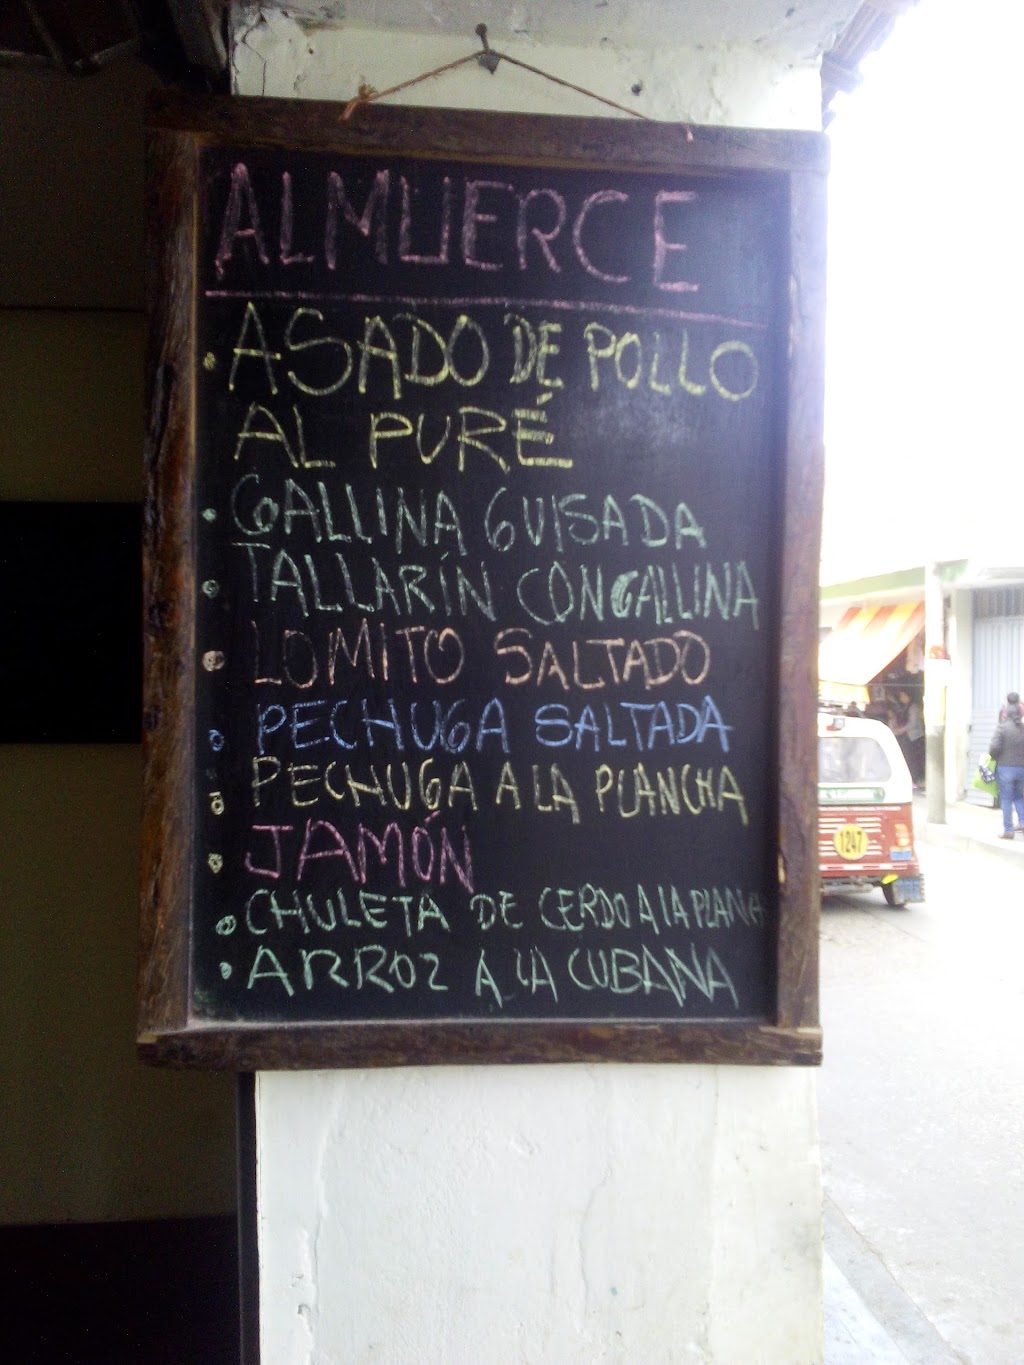 ALMUERCE
• ASADO DE POLLO
AL PURÉ
• GALLINA GUISADA
• TALLARÍN CON GALLINA
• LOMITO SALTADO
• PECHUGA SALTADA
• PECHUGA A LA PLANCHA
• JAMÓN
• CHULETA DE CERDO A LA
• ARROZ A LA CUBANA
1247